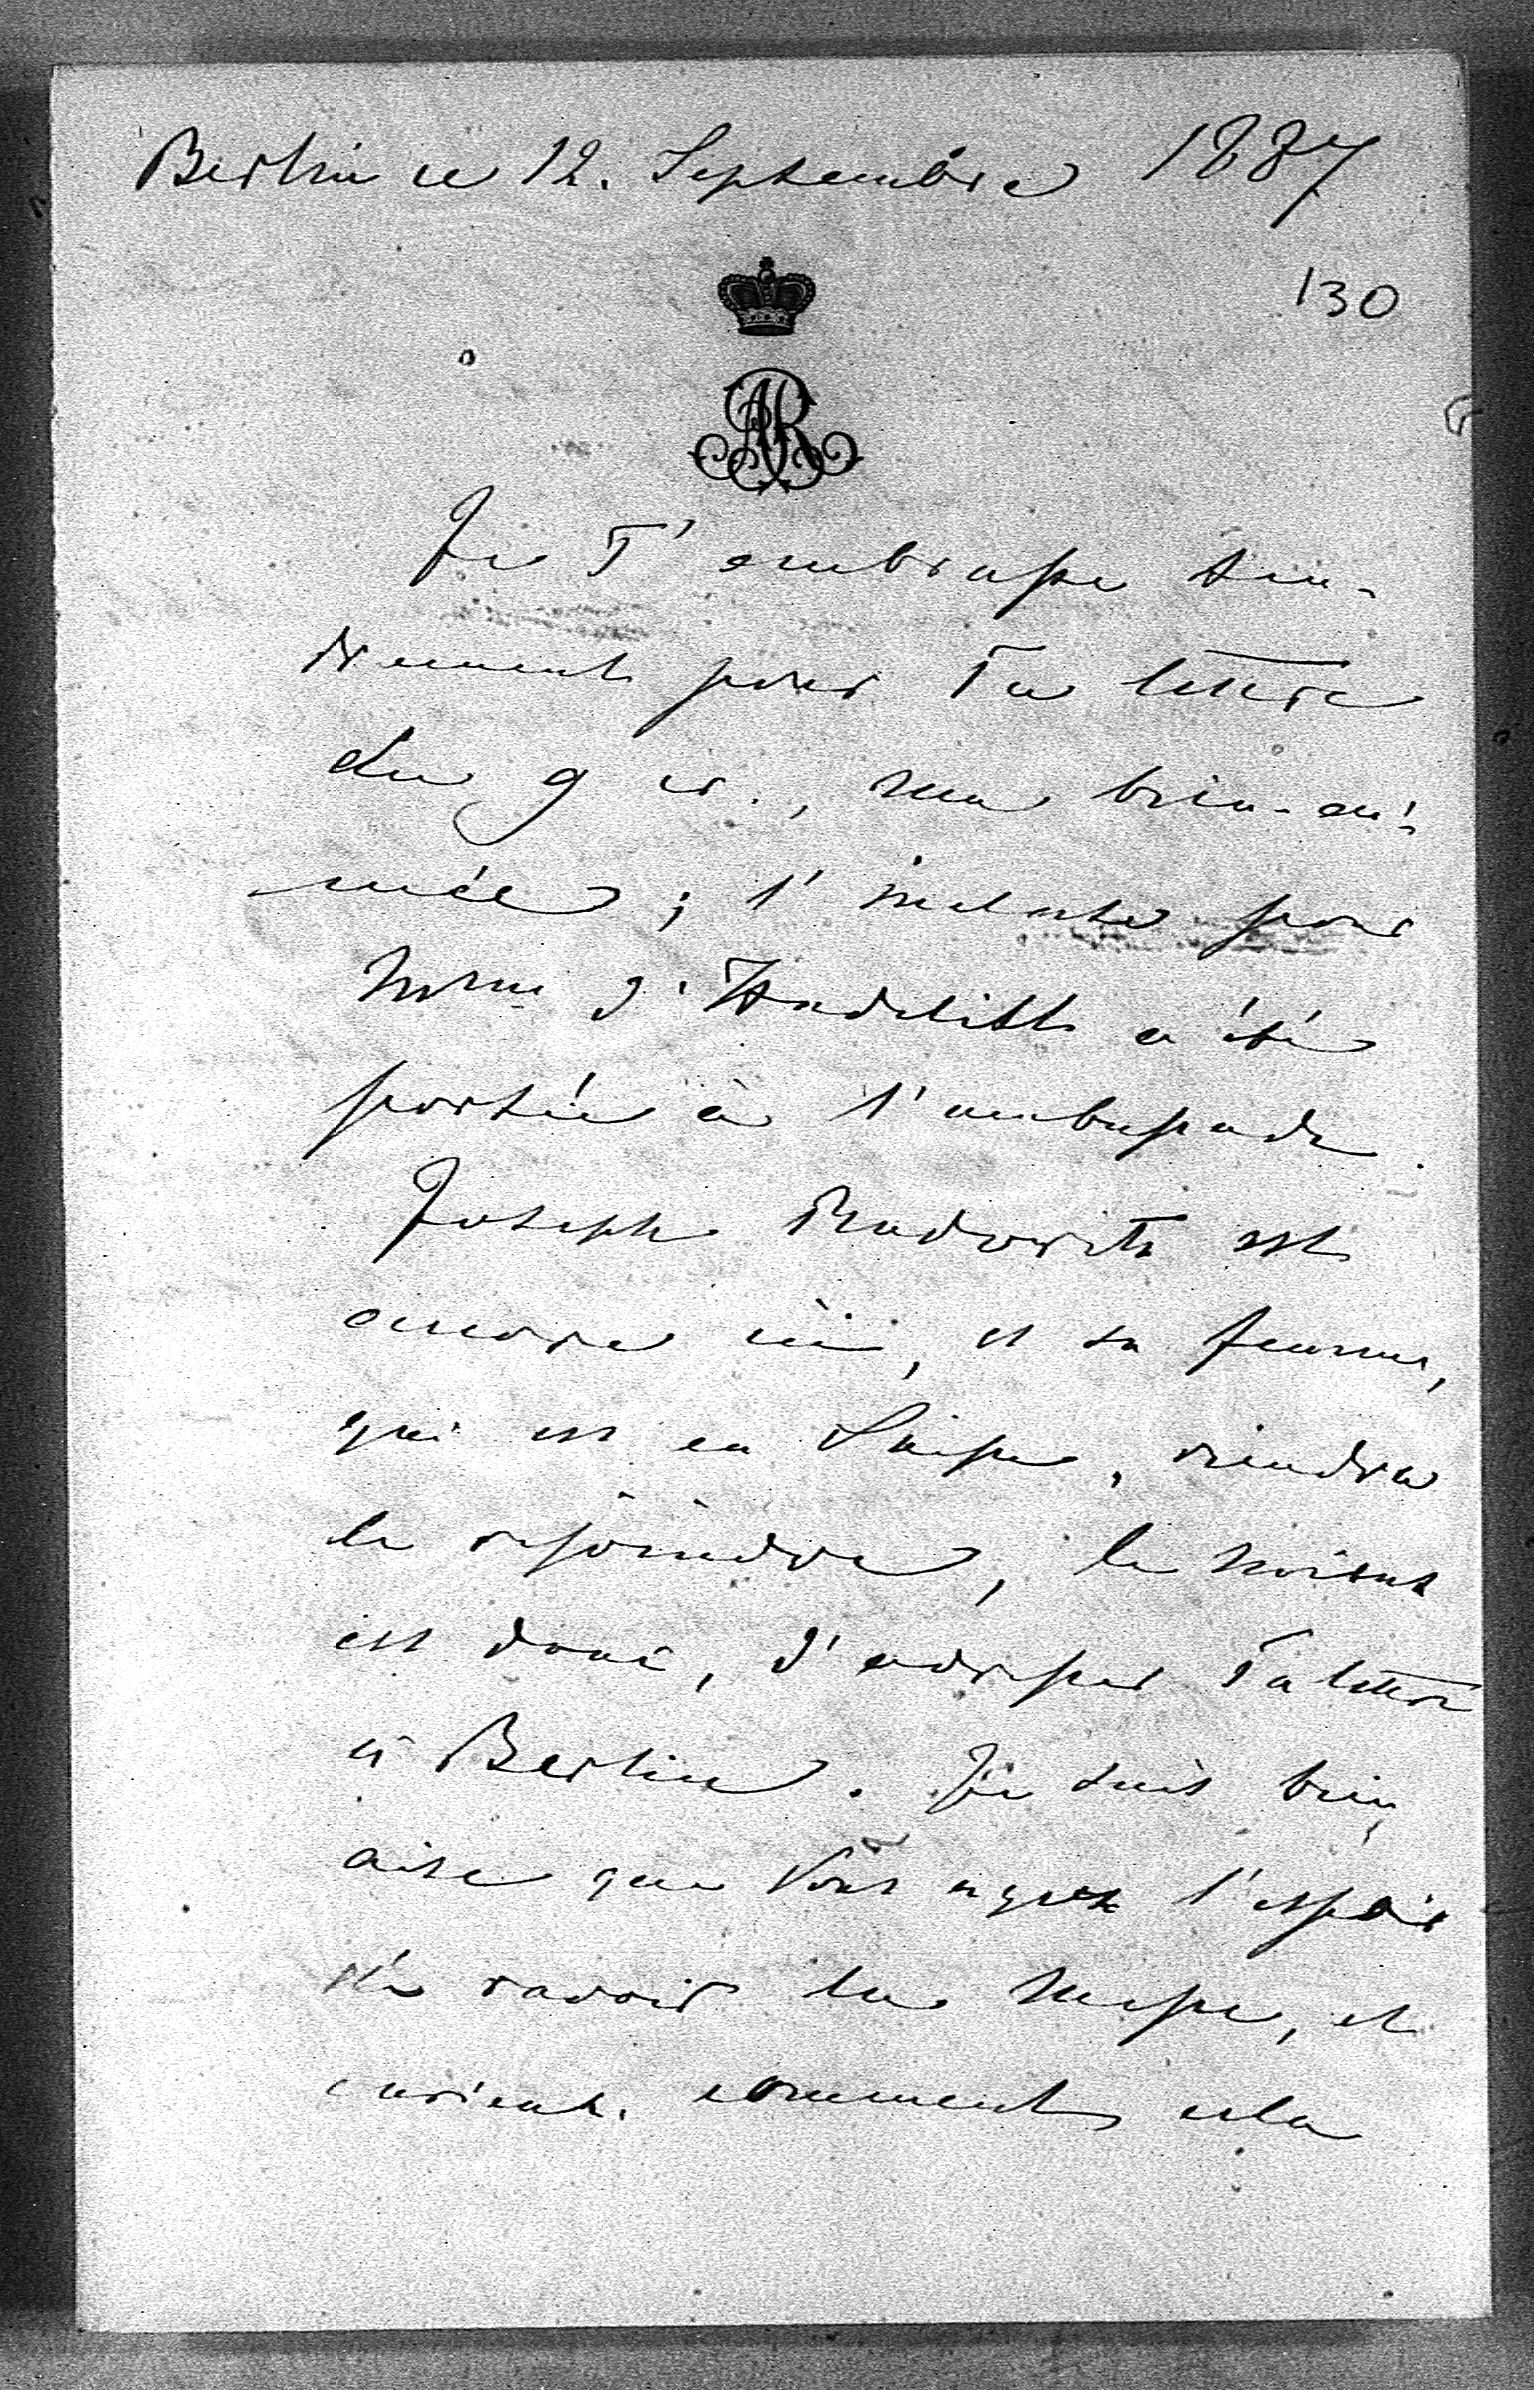 Berlin ce 12. Septembre 1887
130
AR
Je T'embrasse ten-
drement pour Ta lettre
du 9 cr., ma bien-ai-
mée; l'incluse pour
Mme d'Hadelith a été
portée à l'ambassade.
Joseph Radowitz est
encore ici, et sa femme,
qui est en Suisse, viendra
le rejoindre, le mieux
est donc, d'adresser Ta lettre
à Berlin. Je suis bien
aise que Vous ayez l'espoir
de ravoir la messe, et
curieux comment cela